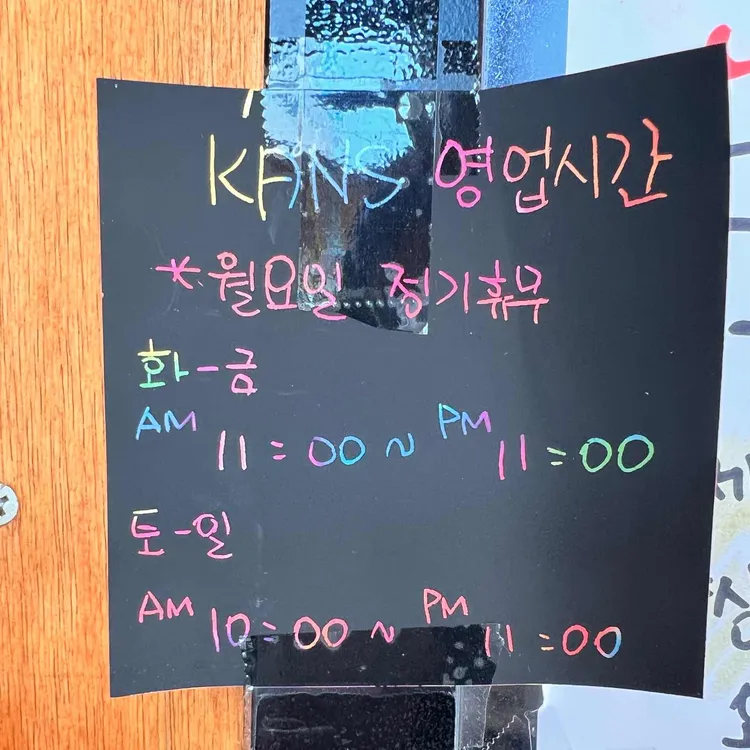 KANS 영업시간
*월요일... 정기휴무
화-금
AM 11:00 ~ PM 11:00
토-일
AM 10:00 ~ PM 11:00